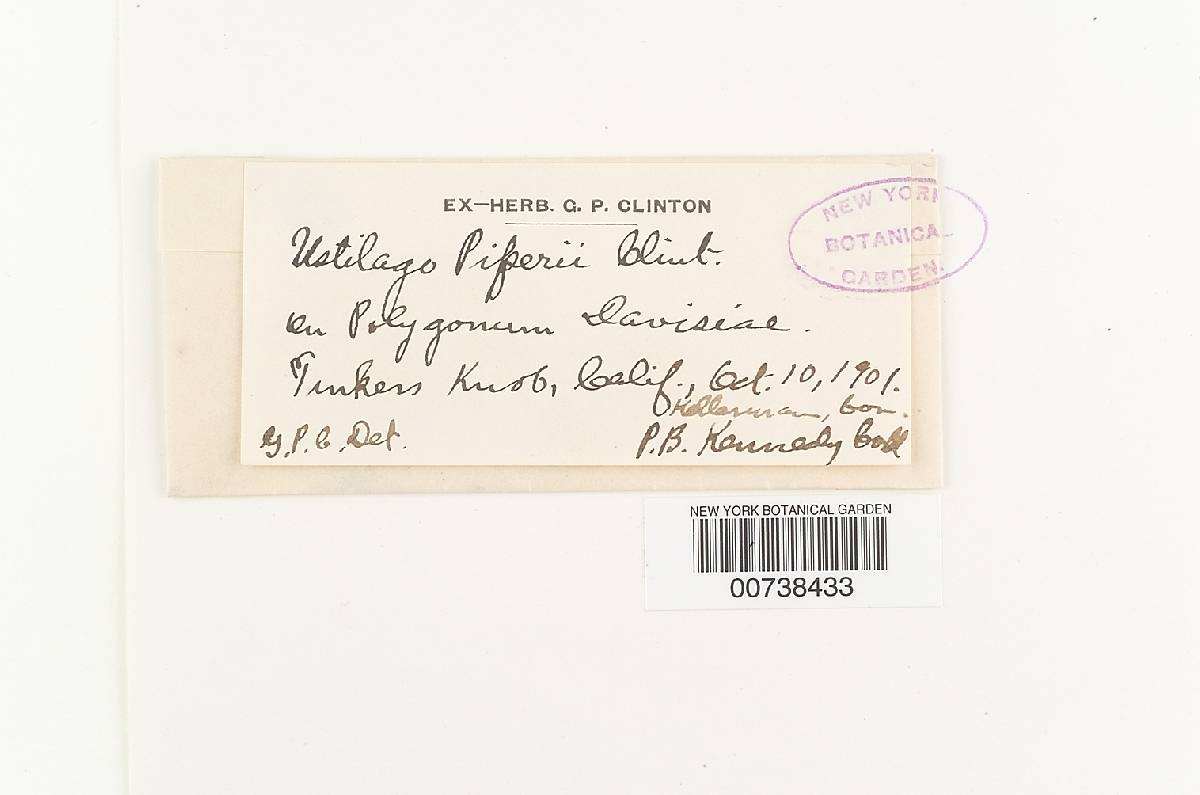 EX—HERB. G. P. CLINTON
NEW YORK
BOTANICAL
GARDEN.
Ustilago Piperii Clint.
on Polygonum Davisiae.
Tinkers Knob, Calif., Oct. 10, 1901.
Kellerman, Com.
G. P. C. Det.
P. B. Kennedy Coll
NEW YORK BOTANICAL GARDEN
00738433